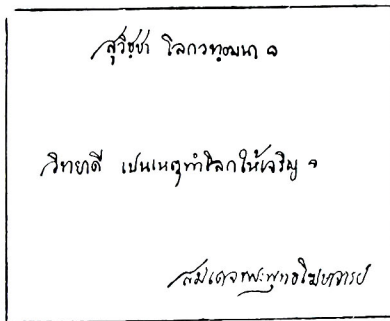 สุวิชฺชา โลกวฑฺฒนา ฯ
วิทยาดี เปนเหตุทำโลกให้เจริญ ฯ
สมเดจพระพุทธโฆษาจารย์